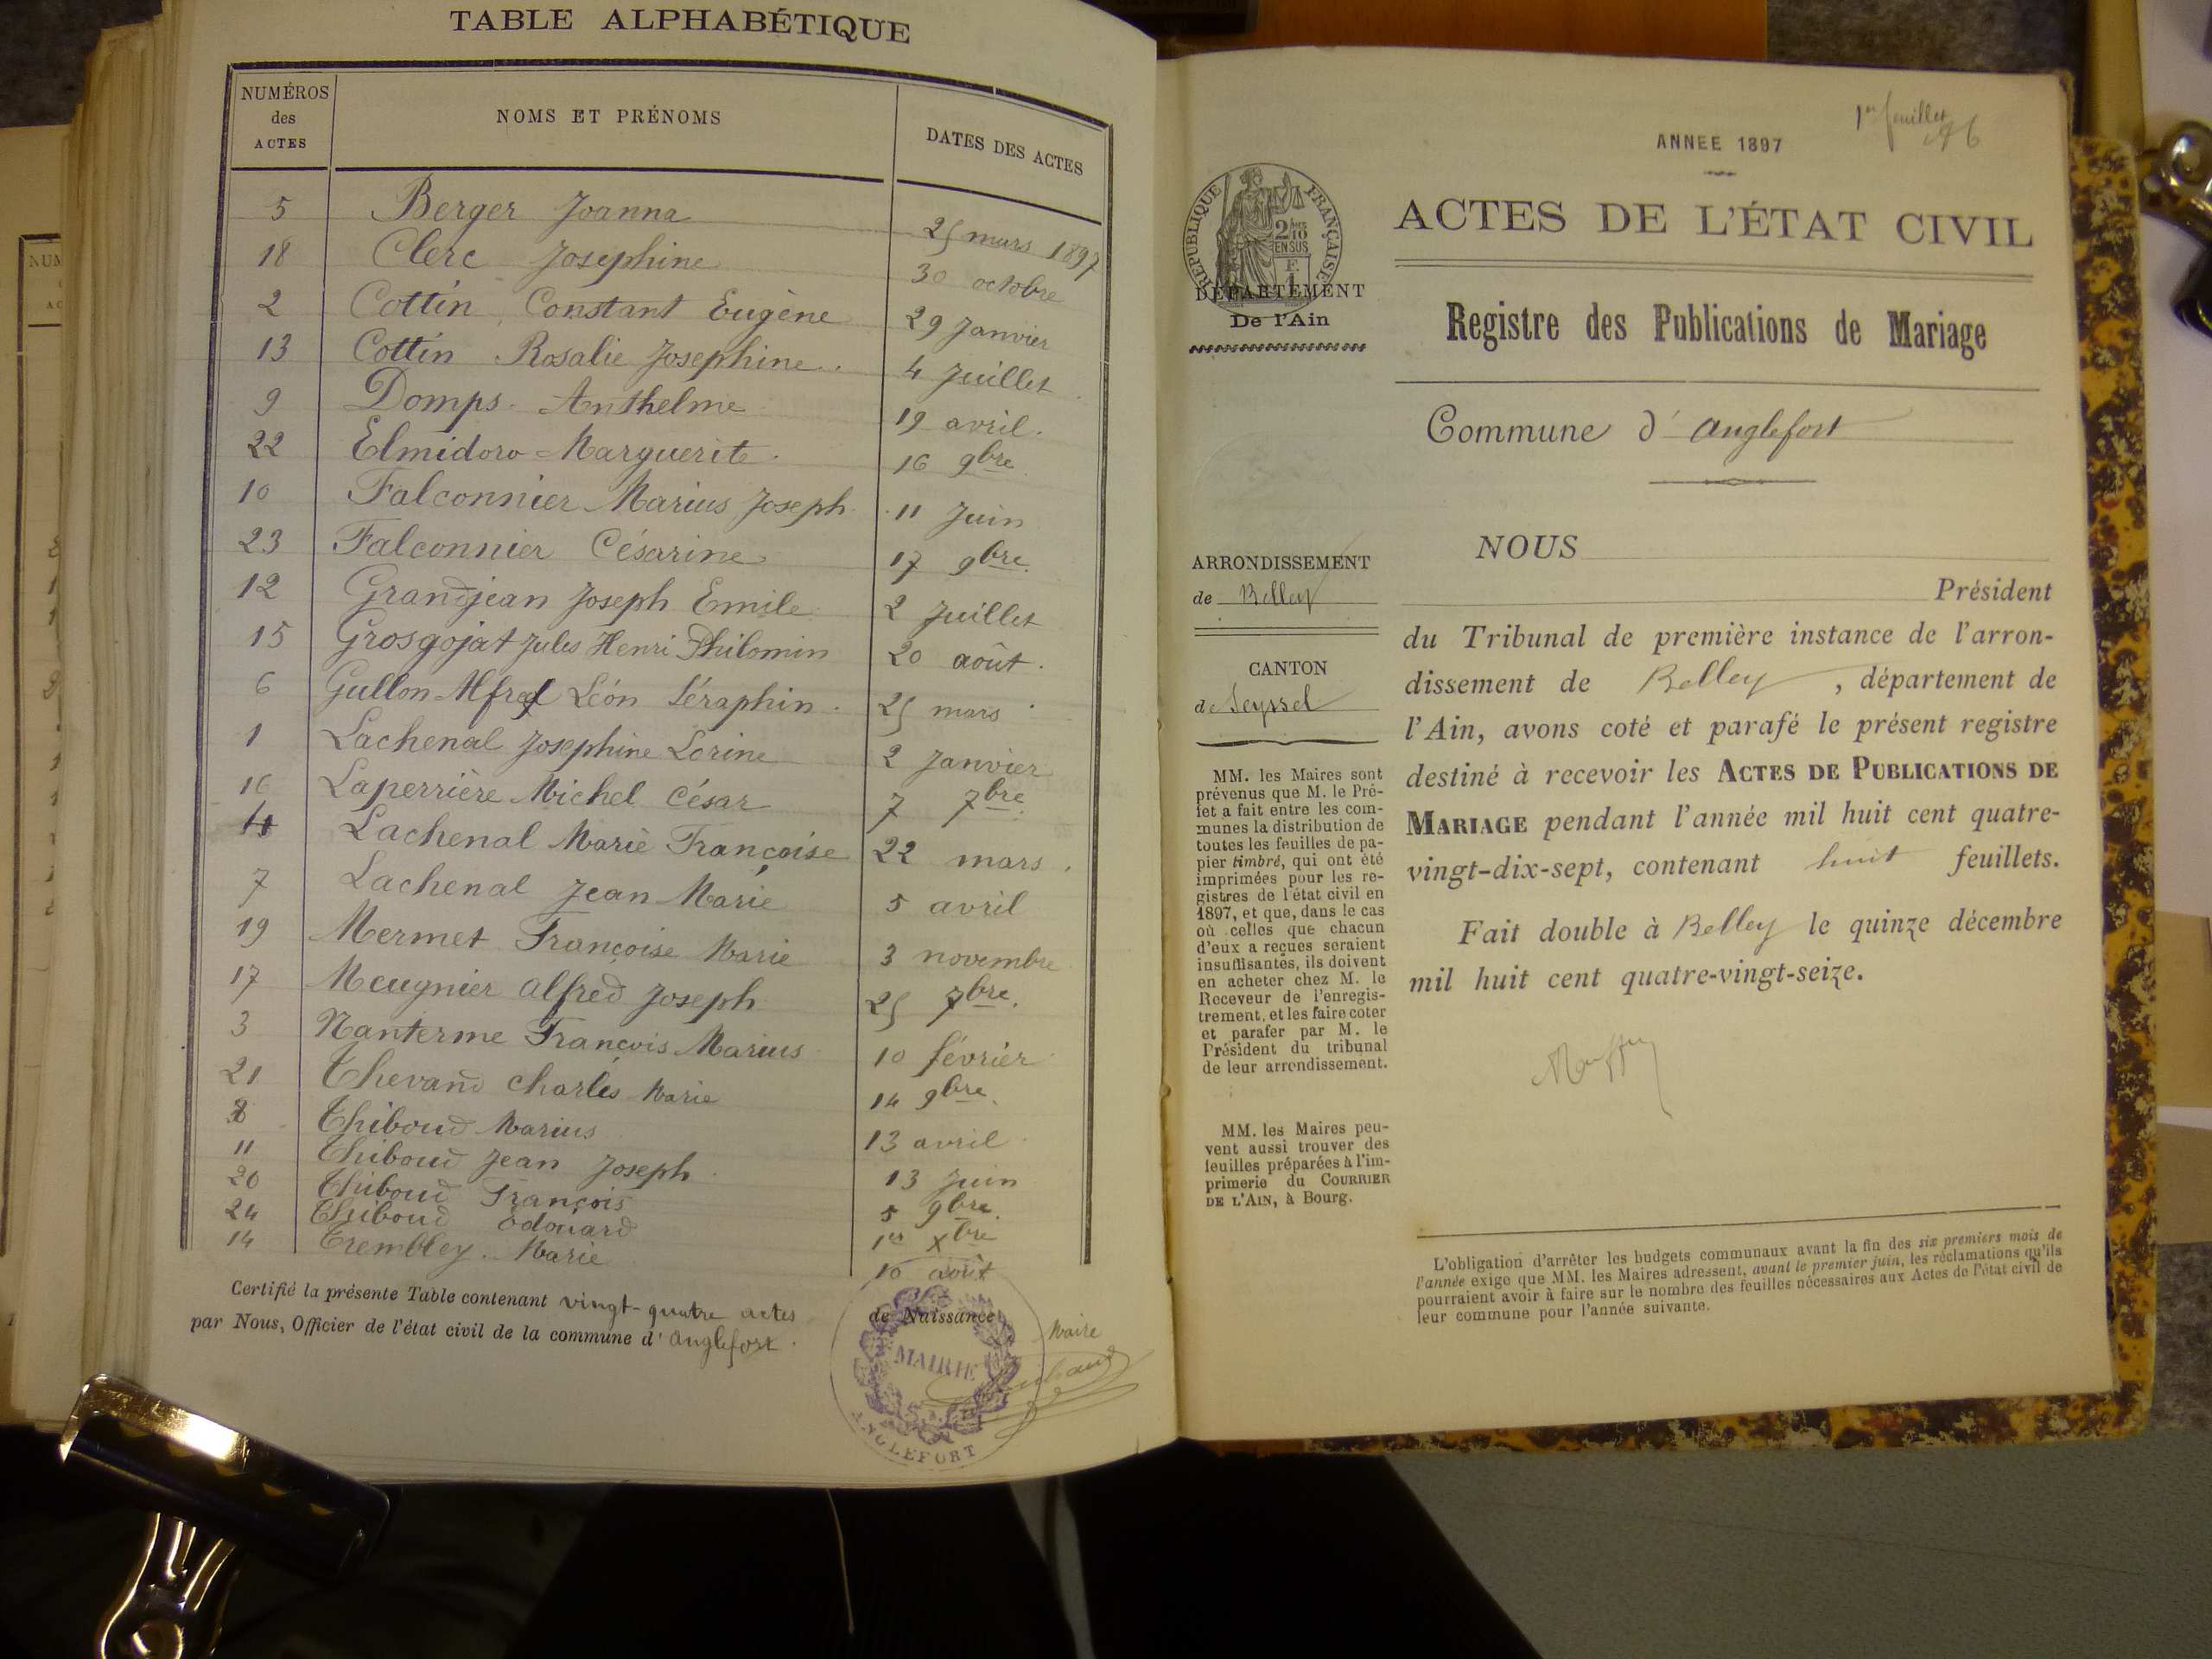 TABLE ALPHABÉTIQUE
NUMÉROS des ACTES
NOMS ET PRÉNOMS
DATES DES ACTES
5 Berger Joanna 25 mars 1897
18 Clerc Josephine 30 octobre
2 Cottin Constant Eugène 29 Janvier
13 Cottin Rosalie Josephine 4 Juillet
9 Domps Anthelme 19 avril
22 Elmidoro Marguerite 16 9bre
10 Falconnier Marius Joseph 11 Juin
23 Falconnier Césarine 17 9bre
12 Grandjean Joseph Emile 2 Juillet
15 Grosgojat Jules Henri Philomin 20 août
6 Gullon Alfred Léon Séraphin 25 mars
1 Lachenal Josephine Lorine 2 Janvier
16 Laperrière Michel César 7 7bre
4 Lachenal Marie Françoise 22 mars
7 Lachenal Jean Marie 5 avril
19 Mermet Françoise Marie 3 novembre
17 Meugnier Alfred Joseph 25 7bre
3 Nanterme François Marius 10 février
21 Thevand Charles Marie 14 9bre
8 Thiboud Marius 13 avril
11 Thiboud Jean Joseph 13 Juin
20 Thiboud François 5 9bre
24 Thiboud Edouard 1er Xbre
14 Trembley Marie 10 août
Certifié la présente Table contenant vingt-quatre actes de Naissance
par Nous, Officier de l'état civil de la commune d' Anglefort.
Maire
MAIRIE
ANGLEFORT
1er feuillet
ANNEE 1897
RÉPUBLIQUE FRANÇAISE
2/10
EN SUS
F.
1
ACTES DE L'ÉTAT CIVIL
DÉPARTEMENT
De l'Ain
Registre des Publications de Mariage
Commune d' Anglefort
ARRONDISSEMENT
de Belley
CANTON
de Seyssel
MM. les Maires sont
prévenus que M. le Pré-
fet a fait entre les com-
munes la distribution de
toutes les feuilles de pa-
pier timbré, qui ont été
imprimées pour les re-
gistres de l'état civil en
1897, et que, dans le cas
où celles que chacun
d'eux a reçues seraient
insuffisantes, ils doivent
en acheter chez M. le
Receveur de l'enregis-
trement, et les faire coter
et parafer par M. le
Président du tribunal
de leur arrondissement.
MM. les Maires peu-
vent aussi trouver des
feuilles préparées à l'im-
primerie du COURRIER
DE L'AIN, à Bourg.
NOUS
Président
du Tribunal de première instance de l'arron-
dissement de Belley, département de
l'Ain, avons coté et parafé le présent registre
destiné à recevoir les ACTES DE PUBLICATIONS DE
MARIAGE pendant l'année mil huit cent quatre-
vingt-dix-sept, contenant huit feuillets.
Fait double à Belley le quinze décembre
mil huit cent quatre-vingt-seize.
L'obligation d'arrêter les budgets communaux avant la fin des six premiers mois de
l'année exige que MM. les Maires adressent, avant le premier juin, les réclamations qu'ils
pourraient avoir à faire sur le nombre des feuilles nécessaires aux Actes de l'état civil de
leur commune pour l'année suivante.